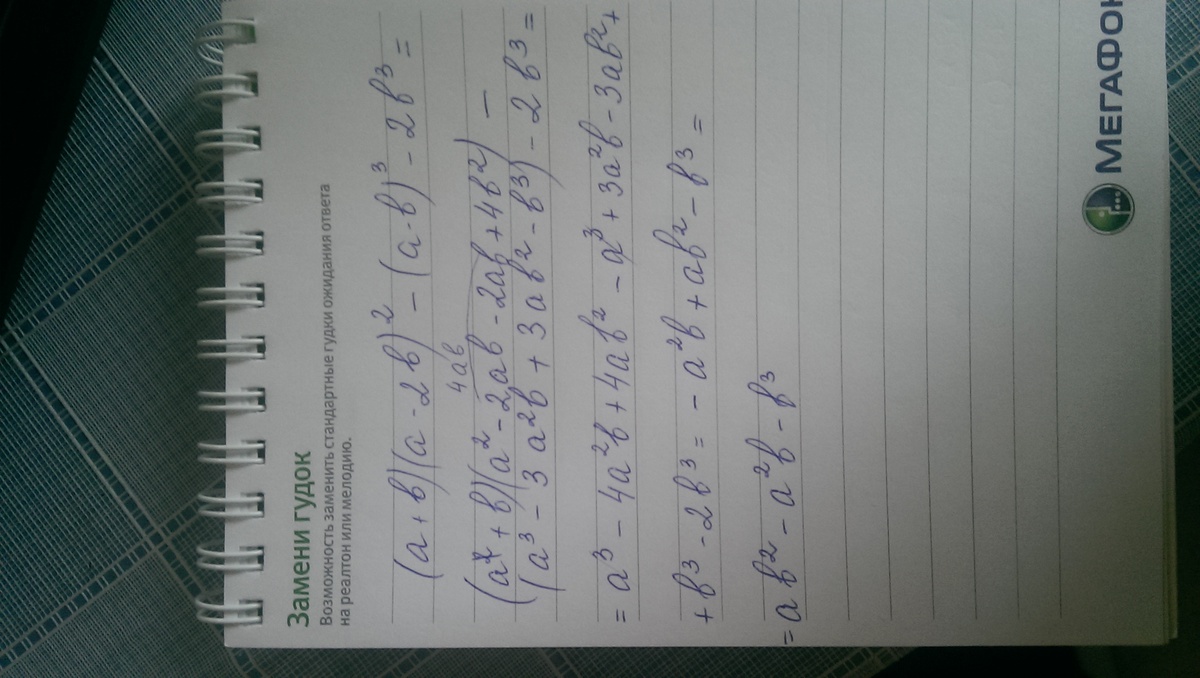 Замени гудок
Возможность заменить стандартные гудки ожидания ответа
на реалтон или мелодию.
(a+b)(a-2b)² - (a-b)³ - 2b³ =
4ab
(a+b)(a²-2ab-2ab+4b²) -
(a³-3a²b+3ab²-b³) - 2b³ =
= a³-4a²b+4ab²-a³+3a²b-3ab²+
+b³-2b³ = -a²b+ab²-b³ =
= ab²-a²b-b³
МЕГАФОН